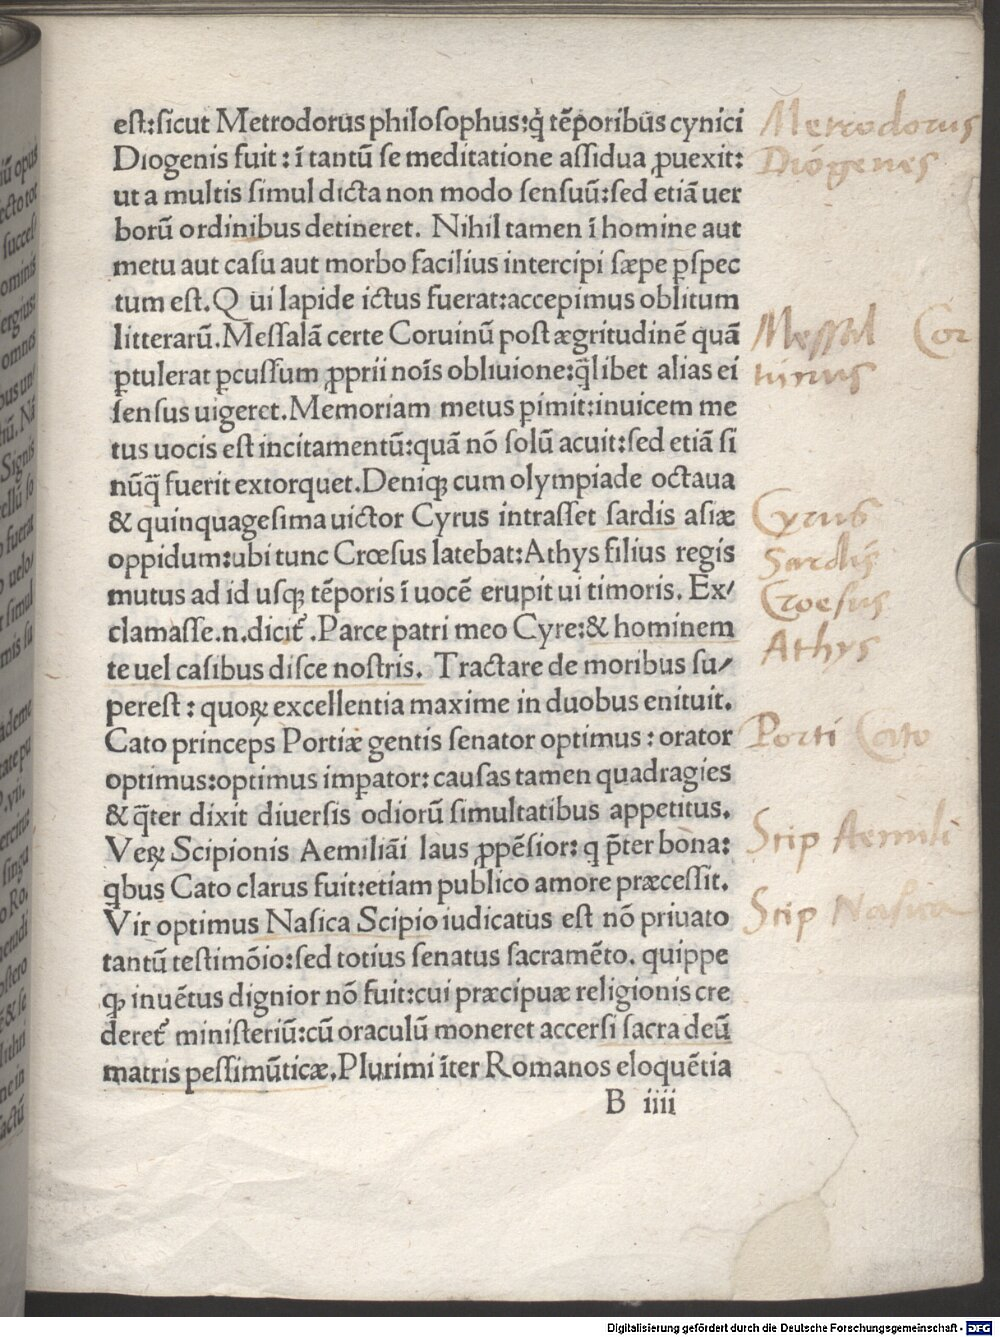 est:sicut Metrodorus philosophus:q̇ tēporibus cynici
Diogenis fuit: ī tantū se meditatione assidua ꝓuexit:
ut a multis simul dicta non modo sensuū:sed etiā uer
borū ordinibus detineret. Nihil tamen ī homine aut
metu aut casu aut morbo facilius intercipi sæpe ꝑspec
tum est. Q ui lapide ictus fuerat:accepimus oblitum
litterarū. Messalā certe Coruinū post ægritudinē quā
ꝑtulerat ꝑcussum ꝓprii noīs obliuione:q̄libet alias ei
sensus uigeret. Memoriam metus ꝑimit:inuicem me
tus uocis est incitamentū:quā nō solū acuit:sed etiā si
nūq̄ fuerit extorquet. Deniqꝫ cum olympiade octaua
& quinquagesima uictor Cyrus intrasset sardis asiæ
oppidum:ubi tunc Crœsus latebat:Athys filius regis
mutus ad id usqꝫ tēporis ī uocē erupit ui timoris. Ex/
clamasse.n.dicit̄. Parce patri meo Cyre:& hominem
te uel casibus disce nostris. Tractare de moribus su/
perest: quoꝝ excellentia maxime in duobus enituit.
Cato princeps Portiæ gentis senator optimus: orator
optimus:optimus imꝑator: causas tamen quadragies
& q̄ter dixit diuersis odiorū simultatibus appetitus.
Veꝝ Scipionis Aemiliāi laus ꝓpēsior: q p̄ter bona:
qbus Cato clarus fuit:etiam publico amore præcessit.
Vir optimus Nasica Scipio iudicatus est nō priuato
tantū testimōio:sed totius senatus sacramēto. quippe
qꝫ inuētus dignior nō fuit:cui præcipuæ religionis cre
deret̄ ministeriū:cū oraculū moneret accersi sacra deū
matris pessimūticæ. Plurimi īter Romanos eloquētia
B iiii
Metrodorus
Diogenes
Messal Cor
uinus
Cyrus
Sardis
Croesus
Athys
Porti Cato
Scip Aemili
Scip Nasica
Digitalisierung gefördert durch die Deutsche Forschungsgemeinschaft - DFG